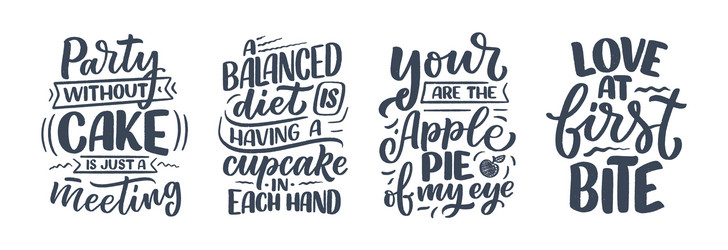 Party
WITHOUT
CAKE
IS JUST A
meeting
A
BALANCED
diet IS
HAVING A
cupcake
IN
EACH HAND
your
ARE THE
Apple
PIE
of my eye
LOVE
AT
first
BiTE